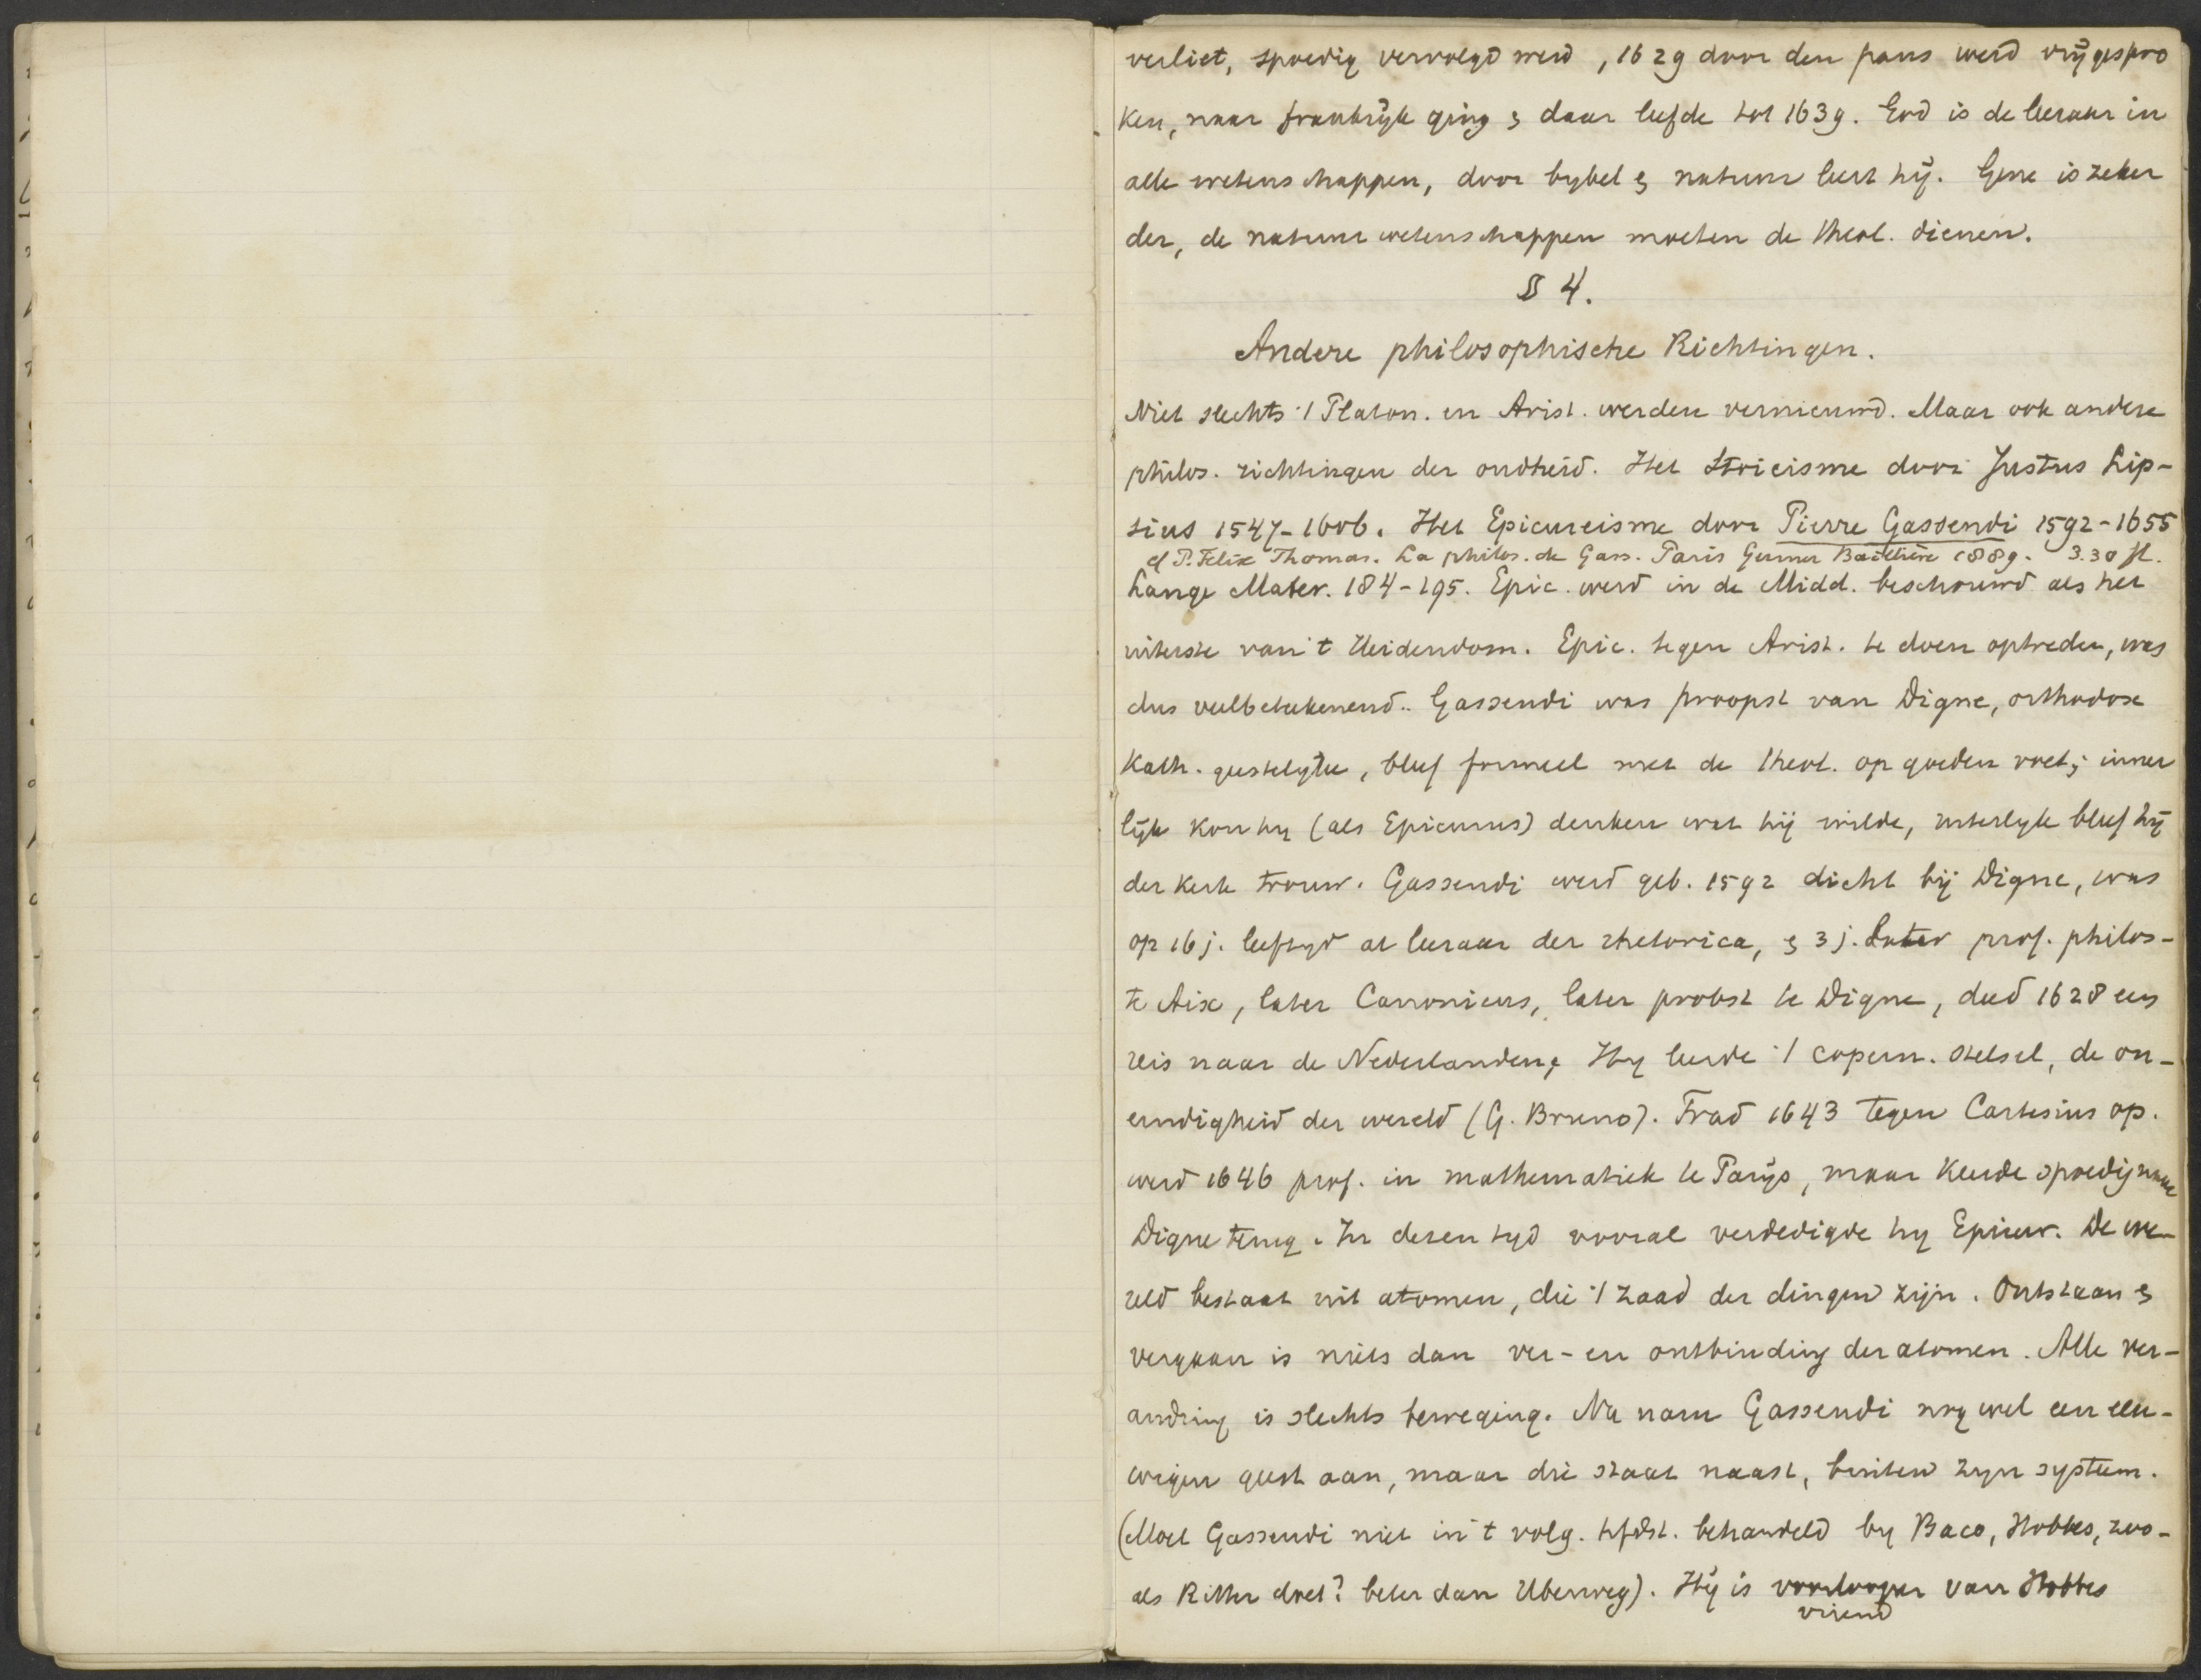 verliet, spoedig vervolgd werd, 1629 door den paus werd vrijgespro
ken, naar frankrijk ging & daar leefde tot 1639. God is de leeraar in
alle wetenschappen, door bybel & natuur leert hij. Gene is zeker
der, de natuurwetenschappen moeten de theol. dienen.
§ 4.
Andere philosophische Richtingen.
Niet slechts 't Platon. en Arist. werden vernieuwd. Maar ook andere
philos. richtingen der oudheid. Het Stoicisme door Justus Lip-
sius 1547-1606. Het Epicureisme door Pierre Gassendi 1592-1655
cf P. Felix Thomas. La philos. de Gass. Paris Germer Baillière 1889. 3.30 fl.
Lange Mater. 184-195. Epic. werd in de Midd. beschouwd als het
uiterste van 't Heidendom. Epic. tegen Arist. te doen optreden, was
dus veelbetekenend. Gassendi was proopst van Digne, orthodox
Kath. geestelyke, bleef formeel met de theol. op goeden voet; inner
lijk kon hy (als Epicurus) denken wat hij wilde, uiterlyk bleef hij
der Kerk trouw. Gassendi werd geb. 1592 dicht bij Digne, was
op 16 j. leeftyd al leeraar der rhetorica, & 3 j. later prof. philos-
te Aix, later Canonicus, later probst te Digne, deed 1628 een
reis naar de Nederlanden; Hy leerde 't copern. stelsel, de on-
eindigheid der wereld (G. Bruno). Trad 1643 tegen Cartesius op.
werd 1646 prof. in mathematiek te Parijs, maar keerde spoedig naar
Digne terug. In dezen tyd vooral verdedigde hy Epicur. De we-
reld bestaat uit atomen, die 't zaad der dingen zijn. Ontstaan &
vergaan is niets dan ver- en ontbinding der atomen. Alle ver-
andring is slechts beweging. Nu nam Gassendi nog wel een eeu-
wigen geest aan, maar die staat naast, buiten zyn systeem.
(Moet Gassendi niet in 't volg. hfdst. behandeld by Baco, Hobbes, zoo-
als Ritter doet? beter dan Uberweg). Hij is voorlooper van Hobbes
vriend